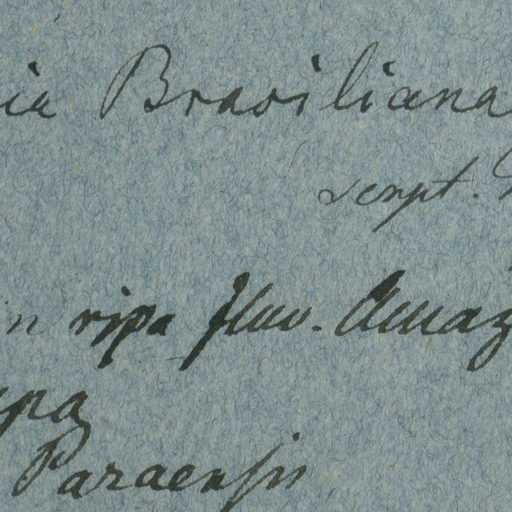 ia Brasiliana
script.
in ripa fluv. Amaz
Paraensis